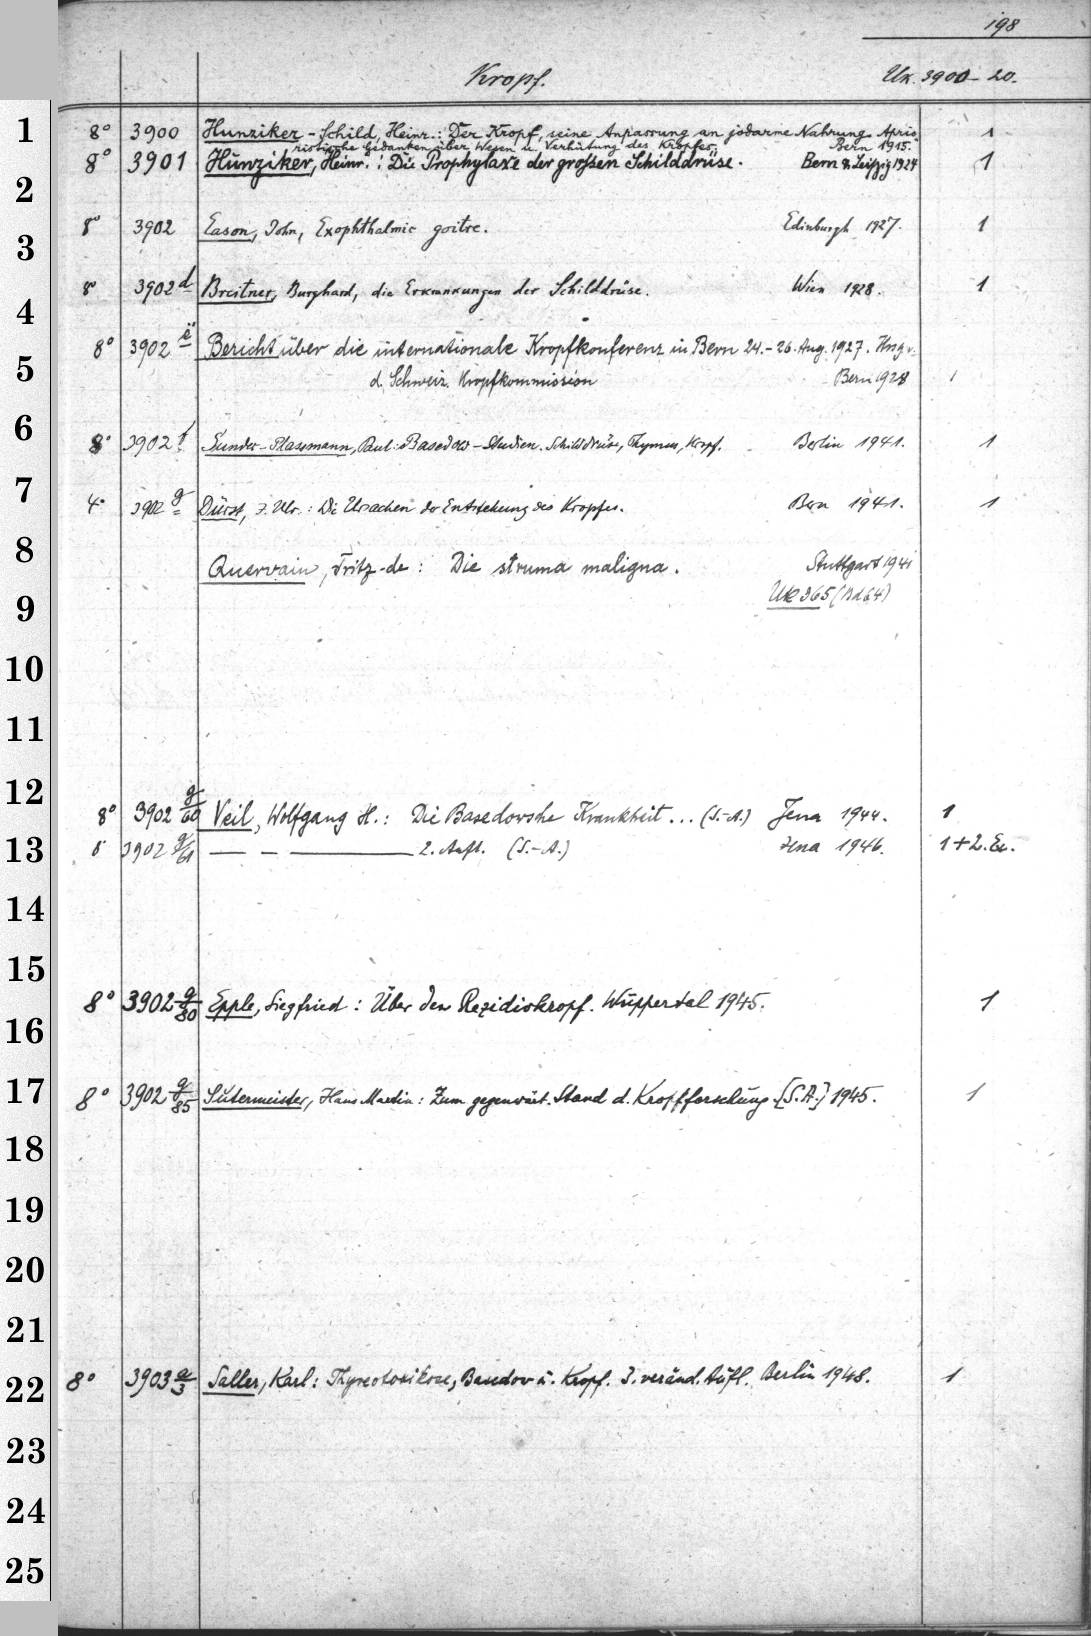 198
Kropf. Uk. 3900-20.
1 8° 3900 Hunziker-Schild, Heinr.: Der Kropf, seine Anpassung an jodarme Nahrung. Aprio- 1
ristische Gedanken über Wesen u. Verhütung des Kropfes. Bern 1915.
8° 3901 Hunziker, Heinr.: Die Prophylaxe der grossen Schilddrüse. Bern & Leipzig 1924 1
2
8° 3902 Eason, John, Exophthalmic goitre. Edinburgh 1927. 1
3
8° 3902 d Breitner, Burghard, die Erkrankungen der Schilddrüse. Wien 1928. 1
4
8° 3902 e Bericht über die internationale Kropfkonferenz in Bern 24.-26. Aug. 1927. Hsg v.
5 d. Schweiz. Kropfkommission Bern 1928 1
6 8° 3902 f Sunder-Plassmann, Paul: Basedow-Studien. Schilddrüse, Thymus, Kropf. Berlin 1941. 1
7 4° 3902 g Dürst, J. Ulr.: Die Ursachen der Entstehung des Kropfes. Bern 1941. 1
8 Quervain, Fritz-de: Die struma maligna. Stuttgart 1941
9 Uk 365 (Bd 64)
10
11
12 8° 3902 g/60 Veil, Wolfgang H.: Die Basedowshe Krankheit... (S.-A.) Jena 1944. 1
13 8° 3902 g/61 — — — 2. Aufl. (S.-A.) Jena 1946. 1+2.Ex.
14
15
8° 3902 g/80 Epple, Siegfried: Über den Rezidivkropf. Wuppertal 1945. 1
16
17 8° 3902 g/85 Sutermeister, Hans Martin: Zum gegenwärt. Stand d. Kropfforschung. [S.A.] 1945. 1
18
19
20
21
22 8° 3903 a/3 Saller, Karl: Thyreotoxikose, Basedow u. Kropf. 3. veränd. Aufl. Berlin 1948. 1
23
24
25